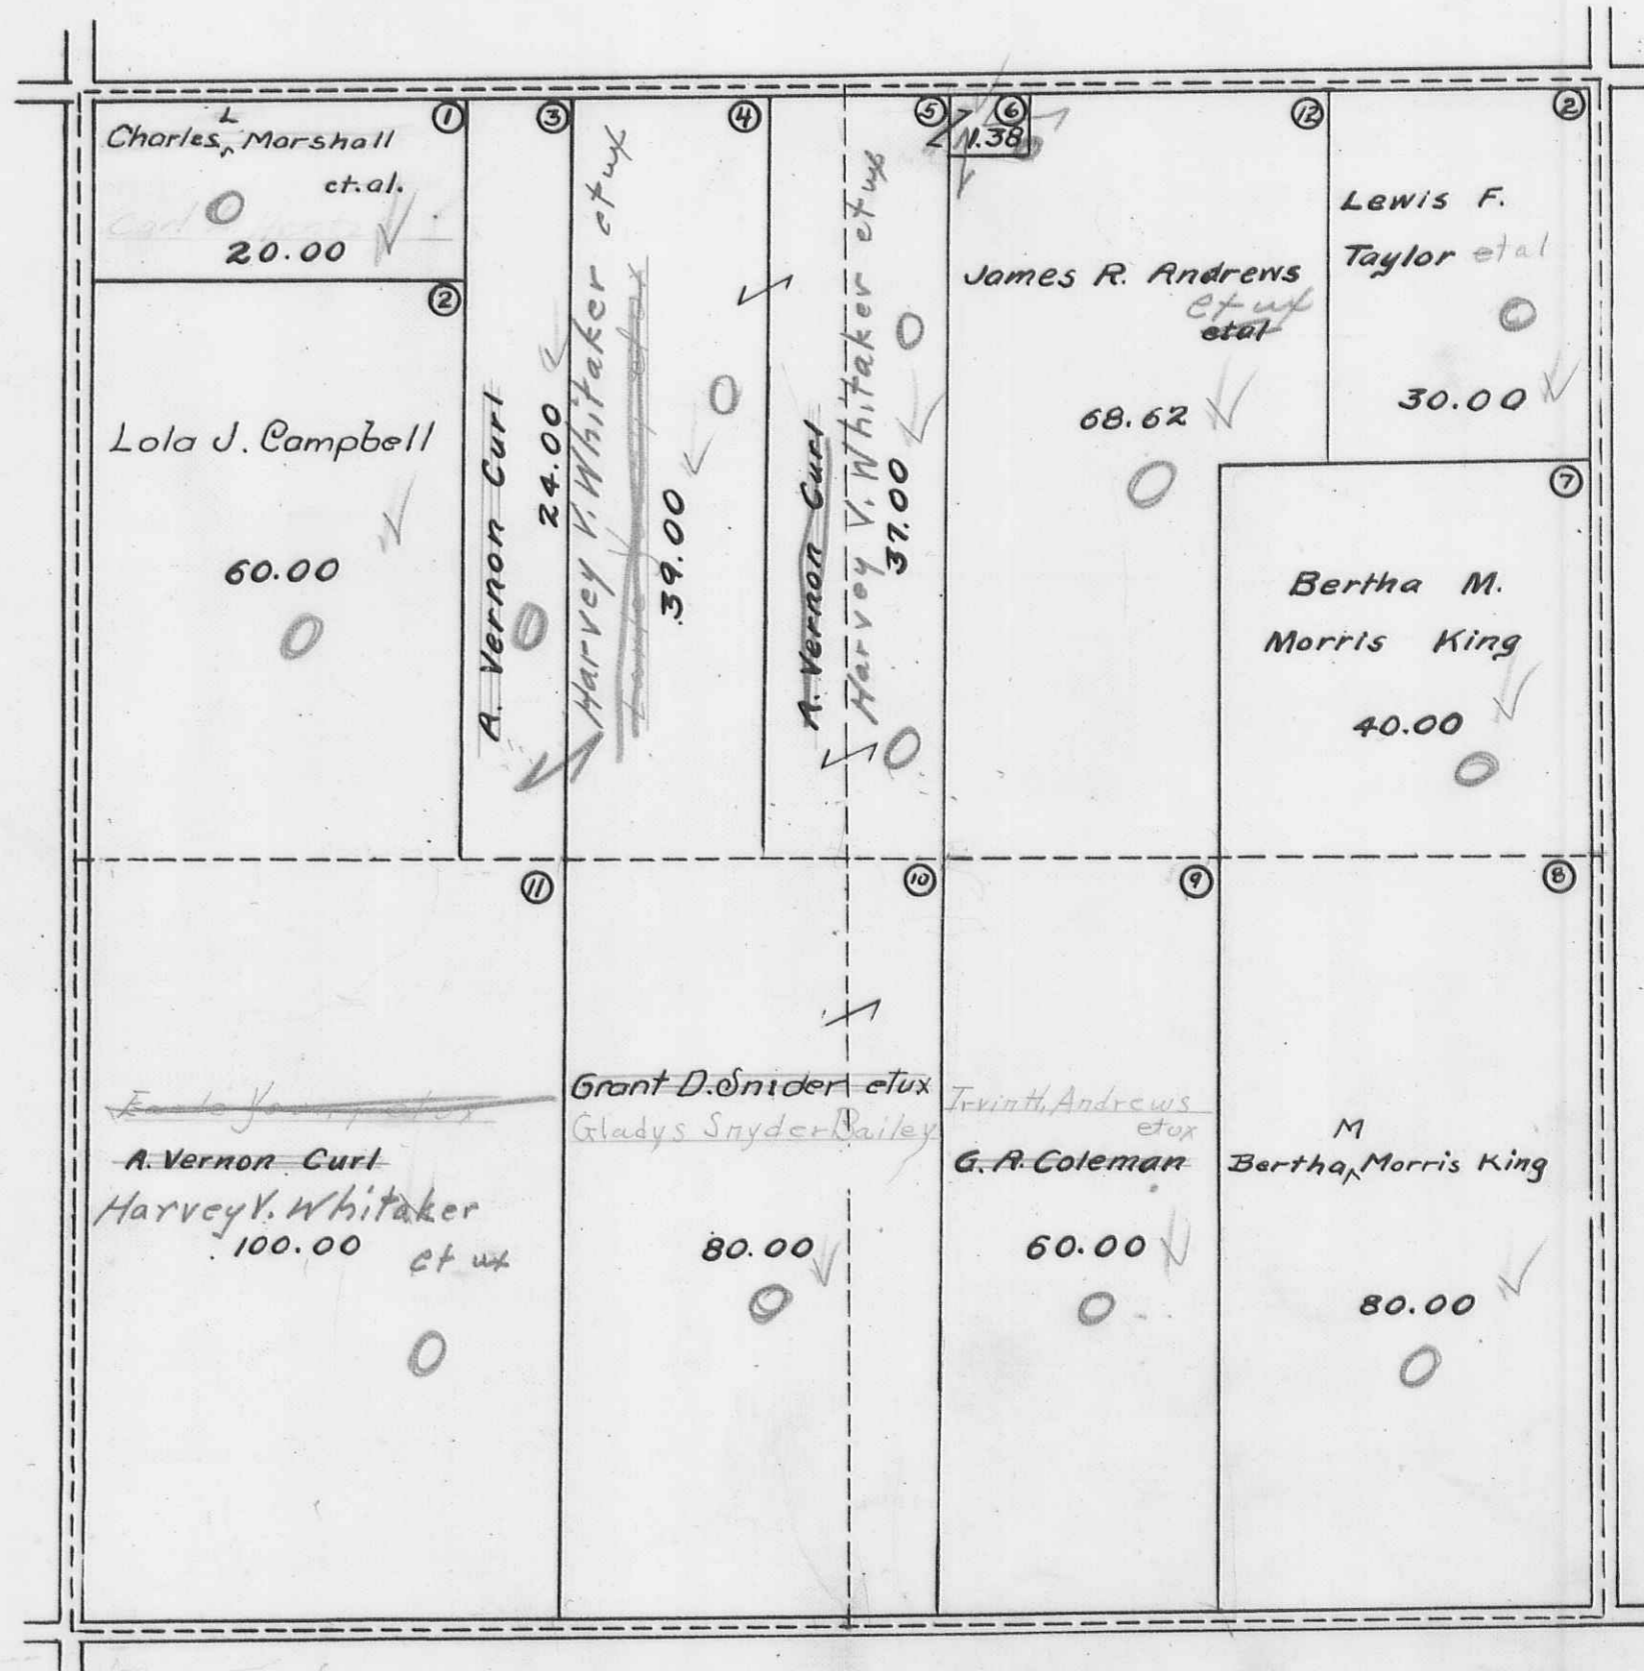 1
Charles L Marshall
et.al.
20.00
2
Lola J. Campbell
60.00
3
A. Vernon Curl
24.00
4
Harvey V. Whitaker et ux
39.00
5
A. Vernon Curl
Harvey V. Whitaker et ux
37.00
6
1.38
12
James R. Andrews
et ux
etal
68.62
2
Lewis F.
Taylor etal
30.00
7
Bertha M.
Morris King
40.00
11
A. Vernon Curl
Harvey V. Whitaker
100.00
et ux
10
Grant D. Snider etux
Gladys Snyder Bailey
80.00
9
Irvin H. Andrews
etux
G. A. Coleman
60.00
8
Bertha M Morris King
80.00